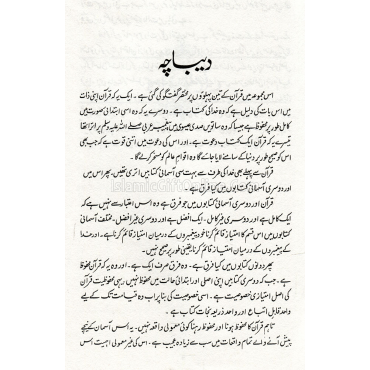 دیباچہ
اس مجموعہ میں قرآن کے تین پہلوؤں پر مختصر گفتگو کی گئی ہے۔ ایک یہ کہ قرآن اپنی ذات
میں اس بات کی دلیل ہے کہ وہ خدا کی کتاب ہے۔ دوسرے یہ کہ وہ اسی ابتدائی صورت میں
کامل طور پر محفوظ ہے جیسا کہ وہ ساتویں صدی عیسوی میں پیغمبر عربی صلی اللہ علیہ وسلم پر اترا تھا
تیسرے یہ کہ قرآن ایک کتاب دعوت ہے، اور اس کی دعوت میں اتنی قوت ہے کہ جب بھی
اس کو صحیح طور پر دنیا کے سامنے لایا جائے گا وہ اقوام عالم کو مسخر کرلے گا۔
قرآن سے پہلے بھی خدا کی طرف سے بہت سی آسمانی کتابیں اتری تھیں، پھر اس میں
اور دوسری آسمانی کتابوں میں کیا فرق ہے۔
قرآن اور دوسری آسمانی کتابوں میں جو فرق ہے وہ اس اعتبار سے نہیں ہے کہ
ایک کامل ہے اور دوسری غیر کامل۔ ایک افضل ہے اور دوسری غیر افضل۔ مختلف آسمانی
کتابوں میں اس قسم کا امتیاز قائم کرنا خدا کے پیغمبروں میں امتیاز قائم کرنا ہے۔ اور خدا
کے پیغمبروں کے درمیان امتیاز قائم کرنا یقینی طور پر صحیح نہیں۔
پھر دونوں کتابوں میں کیا فرق ہے۔ وہ فرق صرف ایک ہے۔ اور وہ یہ کہ قرآن محفوظ
ہے۔ جب کہ دوسری کتابیں اپنی اصلی اور ابتدائی حالت میں محفوظ نہیں رہیں۔ محفوظیت قرآن
کی اصل امتیازی خصوصیت ہے۔ اسی خصوصیت کی بنا پر اب وہ قیامت تک کے لیے
واحد قابل اتباع اور واحد ذریعہ نجات کتاب ہے۔
تاہم قرآن کا محفوظ ہونا اور محفوظ رہنا کوئی معمولی واقعہ نہیں۔ یہ اس آسمان کے نیچے
پیش آنے والے تمام واقعات میں سب سے زیادہ عجیب ہے۔ اس کی غیر معمولی اہمیت اس